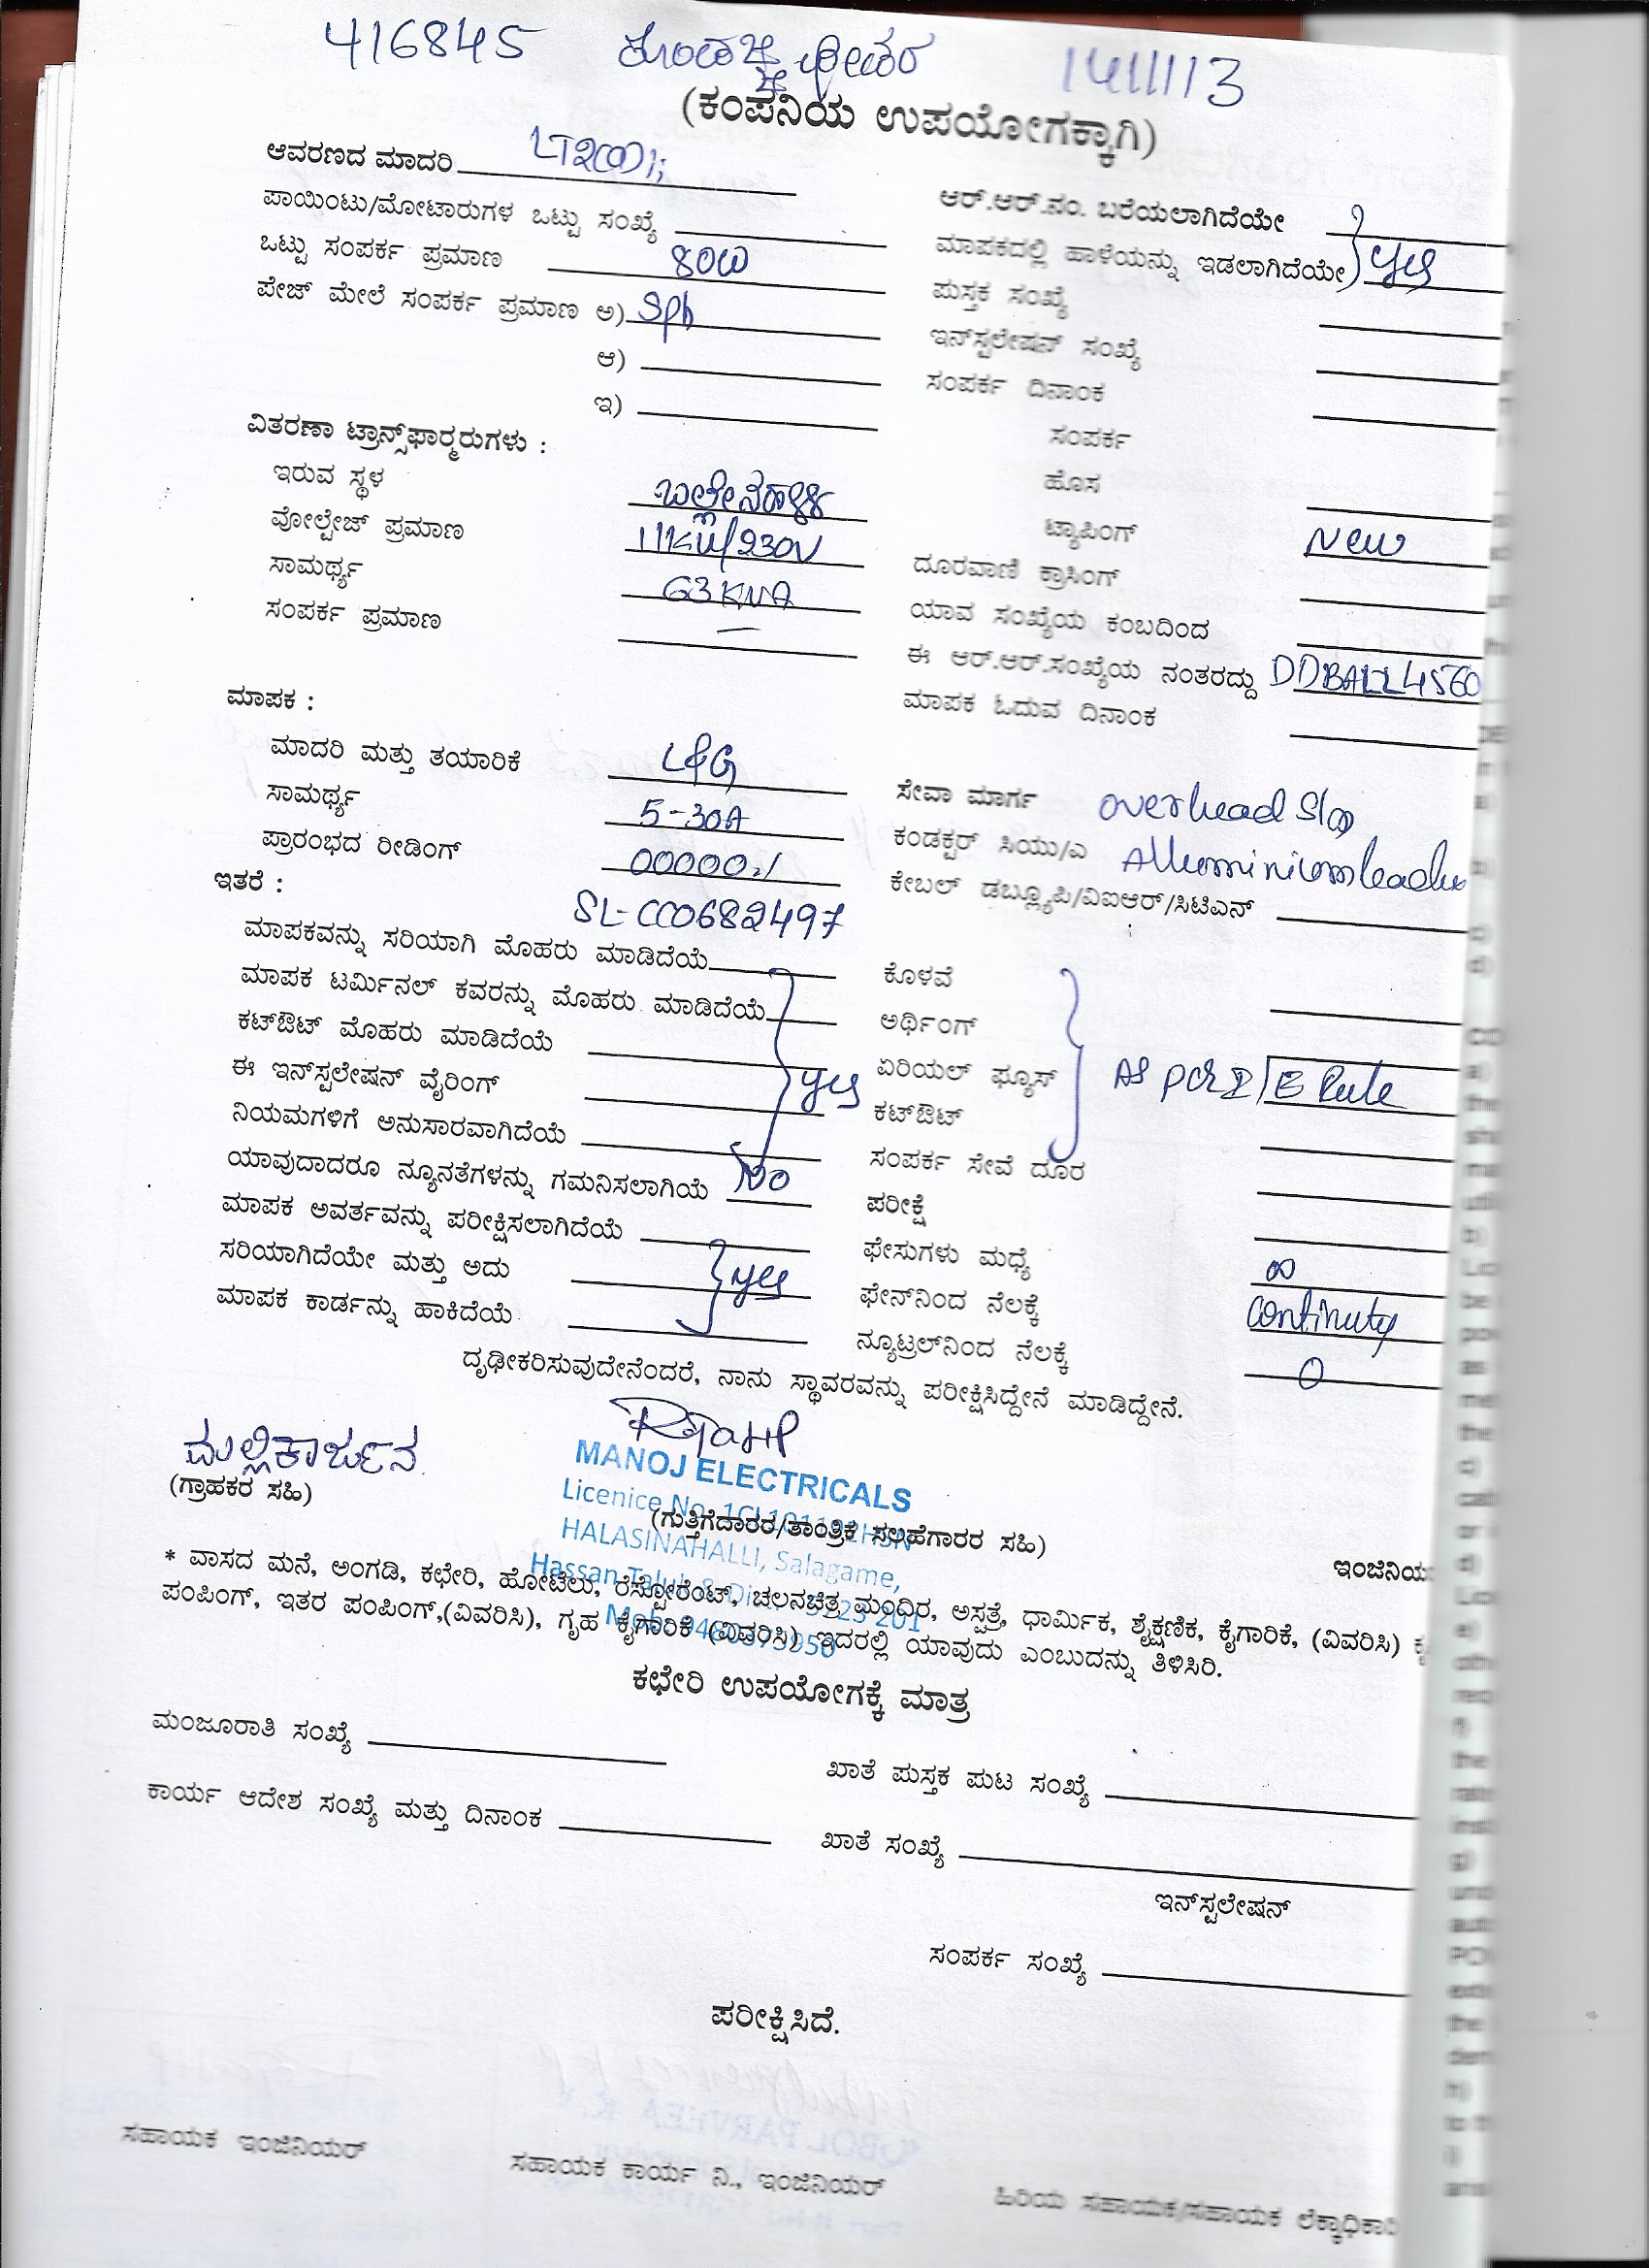 416845 14/11/13
(ಕಂಪನಿಯ ಉಪಯೋಗಕ್ಕಾಗಿ)
ಆವರಣದ ಮಾದರಿ
ಪಾಯಿಂಟು/ಮೋಟಾರುಗಳ ಒಟ್ಟು ಸಂಖ್ಯೆ
ಒಟ್ಟು ಸಂಪರ್ಕ ಪ್ರಮಾಣ 80W
ಪೇಜ್ ಮೇಲೆ ಸಂಪರ್ಕ ಪ್ರಮಾಣ ಅ) Sph
ಆ)
ಇ)
ವಿತರಣಾ ಟ್ರಾನ್ಸ್‌ಫಾರ್‍ಮರುಗಳು :
ಇರುವ ಸ್ಥಳ ಬಲ್ಲೇನಹಳ್ಳಿ
ವೋಲ್ಟೇಜ್ ಪ್ರಮಾಣ 11KV/230V
ಸಾಮರ್ಥ್ಯ 63 KVA
ಸಂಪರ್ಕ ಪ್ರಮಾಣ —
ಆರ್.ಆರ್.ನಂ. ಬರೆಯಲಾಗಿದೆಯೇ
ಮಾಪಕದಲ್ಲಿ ಹಾಳೆಯನ್ನು ಇಡಲಾಗಿದೆಯೇ yes
ಪುಸ್ತಕ ಸಂಖ್ಯೆ
ಇನ್‌ಸ್ಟಲೇಷನ್ ಸಂಖ್ಯೆ
ಸಂಪರ್ಕ ದಿನಾಂಕ
ಸಂಪರ್ಕ
ಹೊಸ
ಟ್ಯಾಪಿಂಗ್ New
ದೂರವಾಣಿ ಕ್ರಾಸಿಂಗ್
ಯಾವ ಸಂಖ್ಯೆಯ ಕಂಬದಿಂದ
ಈ ಆರ್.ಆರ್.ಸಂಖ್ಯೆಯ ನಂತರದ್ದು DDBALL4560
ಮಾಪಕ ಓದುವ ದಿನಾಂಕ
ಮಾಪಕ :
ಮಾದರಿ ಮತ್ತು ತಯಾರಿಕೆ L&G
ಸಾಮರ್ಥ್ಯ 5-30A
ಪ್ರಾರಂಭದ ರೀಡಿಂಗ್ 00000.1
ಇತರೆ :
ಸೇವಾ ಮಾರ್ಗ overhead
ಕಂಡಕ್ಟರ್ ಸಿಯು/ಎ
ಕೇಬಲ್ ಡಬ್ಲ್ಯೂಪಿ/ವಿಐಆರ್/ಸಿಟಿಎನ್
ಮಾಪಕವನ್ನು ಸರಿಯಾಗಿ ಮೊಹರು ಮಾಡಿದೆಯೆ
ಮಾಪಕ ಟರ್ಮಿನಲ್ ಕವರನ್ನು ಮೊಹರು ಮಾಡಿದೆಯೆ
ಕಟ್‌ಔಟ್ ಮೊಹರು ಮಾಡಿದೆಯೆ
ಈ ಇನ್‌ಸ್ಟಲೇಷನ್ ವೈರಿಂಗ್ yes
ನಿಯಮಗಳಿಗೆ ಅನುಸಾರವಾಗಿದೆಯೆ
ಯಾವುದಾದರೂ ನ್ಯೂನತೆಗಳನ್ನು ಗಮನಿಸಲಾಗಿಯೆ No
ಮಾಪಕ ಅವರ್ತವನ್ನು ಪರೀಕ್ಷಿಸಲಾಗಿದೆಯೆ
ಸರಿಯಾಗಿದೆಯೇ ಮತ್ತು ಅದು yes
ಮಾಪಕ ಕಾರ್ಡನ್ನು ಹಾಕಿದೆಯೆ
ಕೊಳವೆ
ಅರ್ಥಿಂಗ್
ಏರಿಯಲ್ ಫ್ಯೂಸ್ As per I/E Rule
ಕಟ್‌ಔಟ್
ಸಂಪರ್ಕ ಸೇವೆ ದೂರ
ಪರೀಕ್ಷೆ
ಫೇಸುಗಳು ಮಧ್ಯೆ ∞
ಫೇನ್‌ನಿಂದ ನೆಲಕ್ಕೆ continuty
ನ್ಯೂಟ್ರಲ್‌ನಿಂದ ನೆಲಕ್ಕೆ 0
ದೃಢೀಕರಿಸುವುದೇನೆಂದರೆ, ನಾನು ಸ್ಥಾವರವನ್ನು ಪರೀಕ್ಷಿಸಿದ್ದೇನೆ ಮಾಡಿದ್ದೇನೆ.
ಮಲ್ಲಿಕಾರ್ಜುನ
(ಗ್ರಾಹಕರ ಸಹಿ)
MANOJ ELECTRICALS
Licenice No.
(ಗುತ್ತಿಗೆದಾರರ/ತಾಂತ್ರಿಕ ಸಲಹೆಗಾರರ ಸಹಿ)
HALASINAHALLI, Salagame,
Hassan
ಇಂಜಿನಿಯ
* ವಾಸದ ಮನೆ, ಅಂಗಡಿ, ಕಛೇರಿ, ಹೋಟೆಲು, ರೆಸ್ಟೋರೆಂಟ್, ಚಲನಚಿತ್ರ ಮಂದಿರ, ಅಸ್ಪತ್ರೆ, ಧಾರ್ಮಿಕ, ಶೈಕ್ಷಣಿಕ, ಕೈಗಾರಿಕೆ, (ವಿವರಿಸಿ)
ಪಂಪಿಂಗ್, ಇತರ ಪಂಪಿಂಗ್,(ವಿವರಿಸಿ), ಗೃಹ ಕೈಗಾರಿಕೆ (ವಿವರಿಸಿ) ಇದರಲ್ಲಿ ಯಾವುದು ಎಂಬುದನ್ನು ತಿಳಿಸಿರಿ.
ಕಛೇರಿ ಉಪಯೋಗಕ್ಕೆ ಮಾತ್ರ
ಮಂಜೂರಾತಿ ಸಂಖ್ಯೆ
ಖಾತೆ ಪುಸ್ತಕ ಪುಟ ಸಂಖ್ಯೆ
ಕಾರ್ಯ ಆದೇಶ ಸಂಖ್ಯೆ ಮತ್ತು ದಿನಾಂಕ
ಖಾತೆ ಸಂಖ್ಯೆ
ಇನ್‌ಸ್ಟಲೇಷನ್
ಸಂಪರ್ಕ ಸಂಖ್ಯೆ
ಪರೀಕ್ಷಿಸಿದೆ.
ಸಹಾಯಕ ಇಂಜಿನಿಯರ್
ಸಹಾಯಕ ಕಾರ್ಯ ನಿ., ಇಂಜಿನಿಯರ್
ಹಿರಿಯ ಸಹಾಯಕ/ಸಹಾಯಕ ಲೆಕ್ಕಾಧಿಕಾರಿ